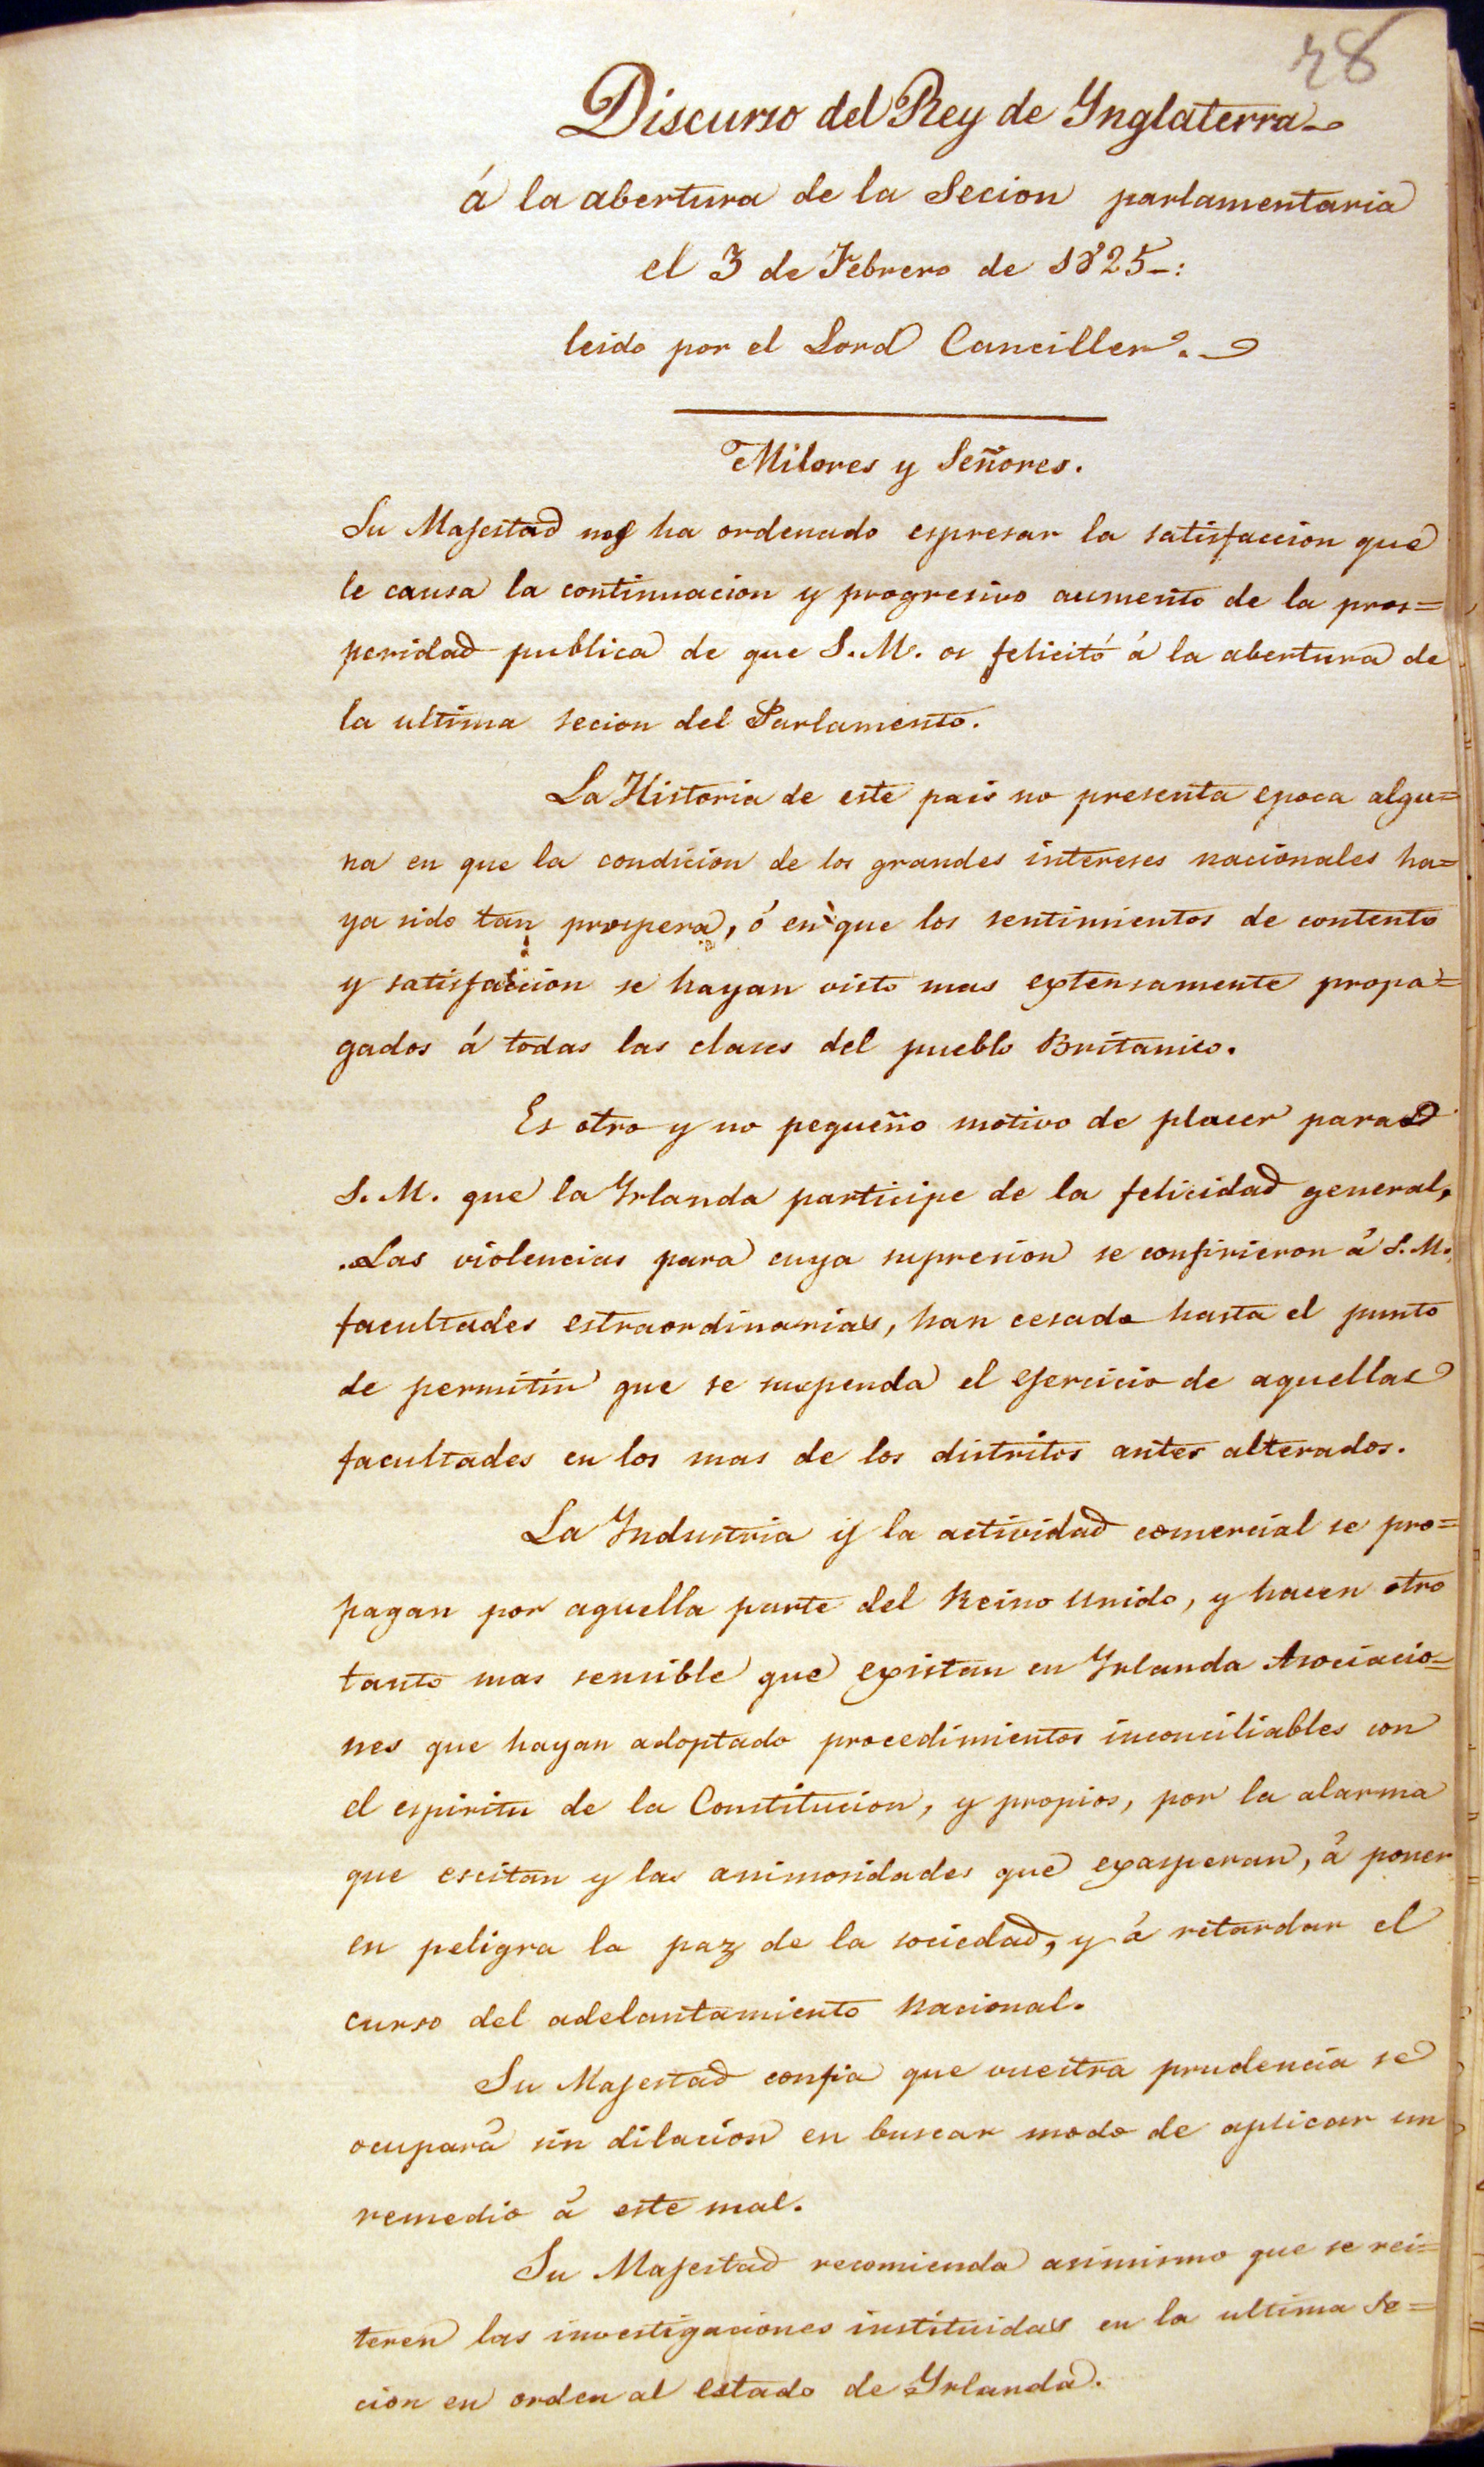 28
Discurso del Rey de Ynglaterra
á la abertura de la Secion parlamentaria
el 3 de Febrero de 1825-:
leido por el Lord Canciller.
Milores y Señores.
Su Majestad nos ha ordenado espresar la satisfaccion que
le causa la continuacion y progresivo aumento de la pros=
peridad publica de que S.M. os felicitó á la abertura de
la ultima secion del Parlamento.
La Historia de este pais no presenta epoca algu=
na en que la condicion de los grandes intereses nacionales ha=
ya sido tan prospera, ó en que los sentimientos de contento
y satisfaccion se hayan visto mas extensamente propa=
gados á todas las clases del pueblo Britanico.
Es otro y no pequeño motivo de placer para
S.M. que la Yrlanda participe de la felicidad general.
Las violencias para cuya supresion se confirieron á S.M.
facultades estraordinarias, han cesado hasta el punto
de permitir que se suspenda el ejercicio de aquellas
facultades en los mas de los distritos antes alterados.
La Yndustria y la actividad comercial se pro=
pagan por aquella parte del Reino Unido, y hacen otro
tanto mas sensible que existan en Yrlanda Asociacio=
nes que hayan adoptado procedimientos inconciliables con
el espiritu de la Constitucion, y propios, por la alarma
que escitan y las animosidades que exasperan, á poner
en peligra la paz de la sociedad, y á retardar el
curso del adelantamiento Nacional.
Su Majestad confia que vuestra prudencia se
ocupará sin dilacion en buscar modo de aplicar un
remedio á este mal.
Su Majestad recomienda asimismo que se rei=
teren las investigaciones instituidas en la ultima Se=
cion en orden al estado de Yrlanda.